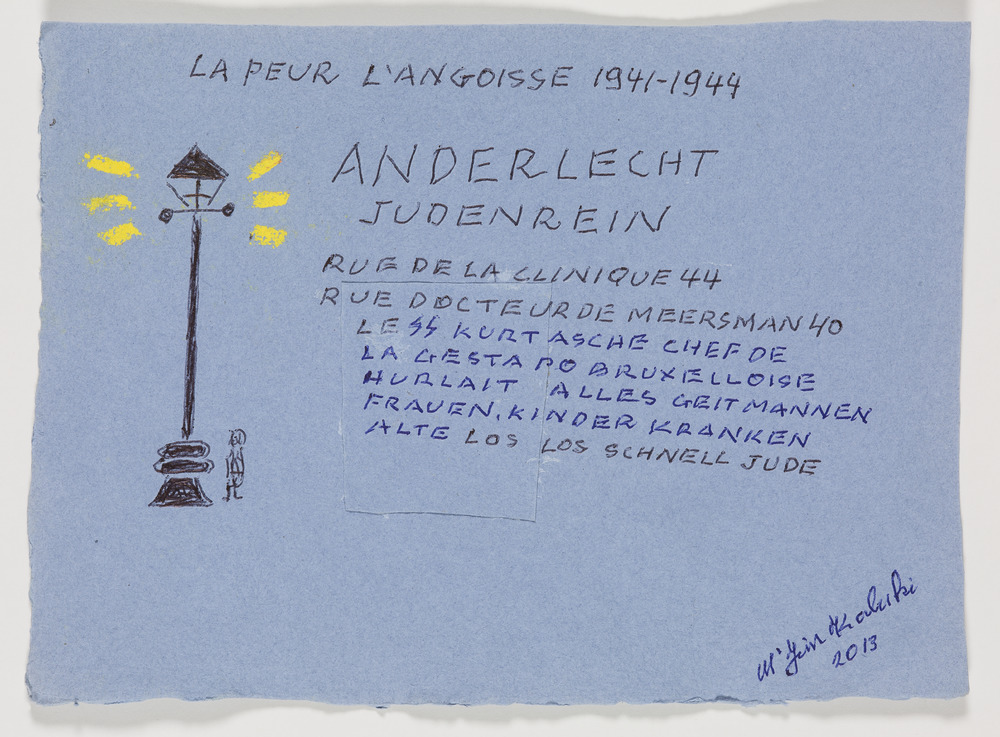 LA PEUR L'ANGOISSE 1941-1944
ANDERLECHT
JUDENREIN
RUE DE LA CLINIQUE 44
RUE DOCTEUR DE MEERSMAN 40
LE SS KURT ASCHE CHEF DE
LA GESTAPO BRUXELLOISE
HURLAIT ALLES GEIT MANNEN
FRAUEN, KINDER KRANKEN
ALTE LOS LOS SCHNELL JUDE
2013